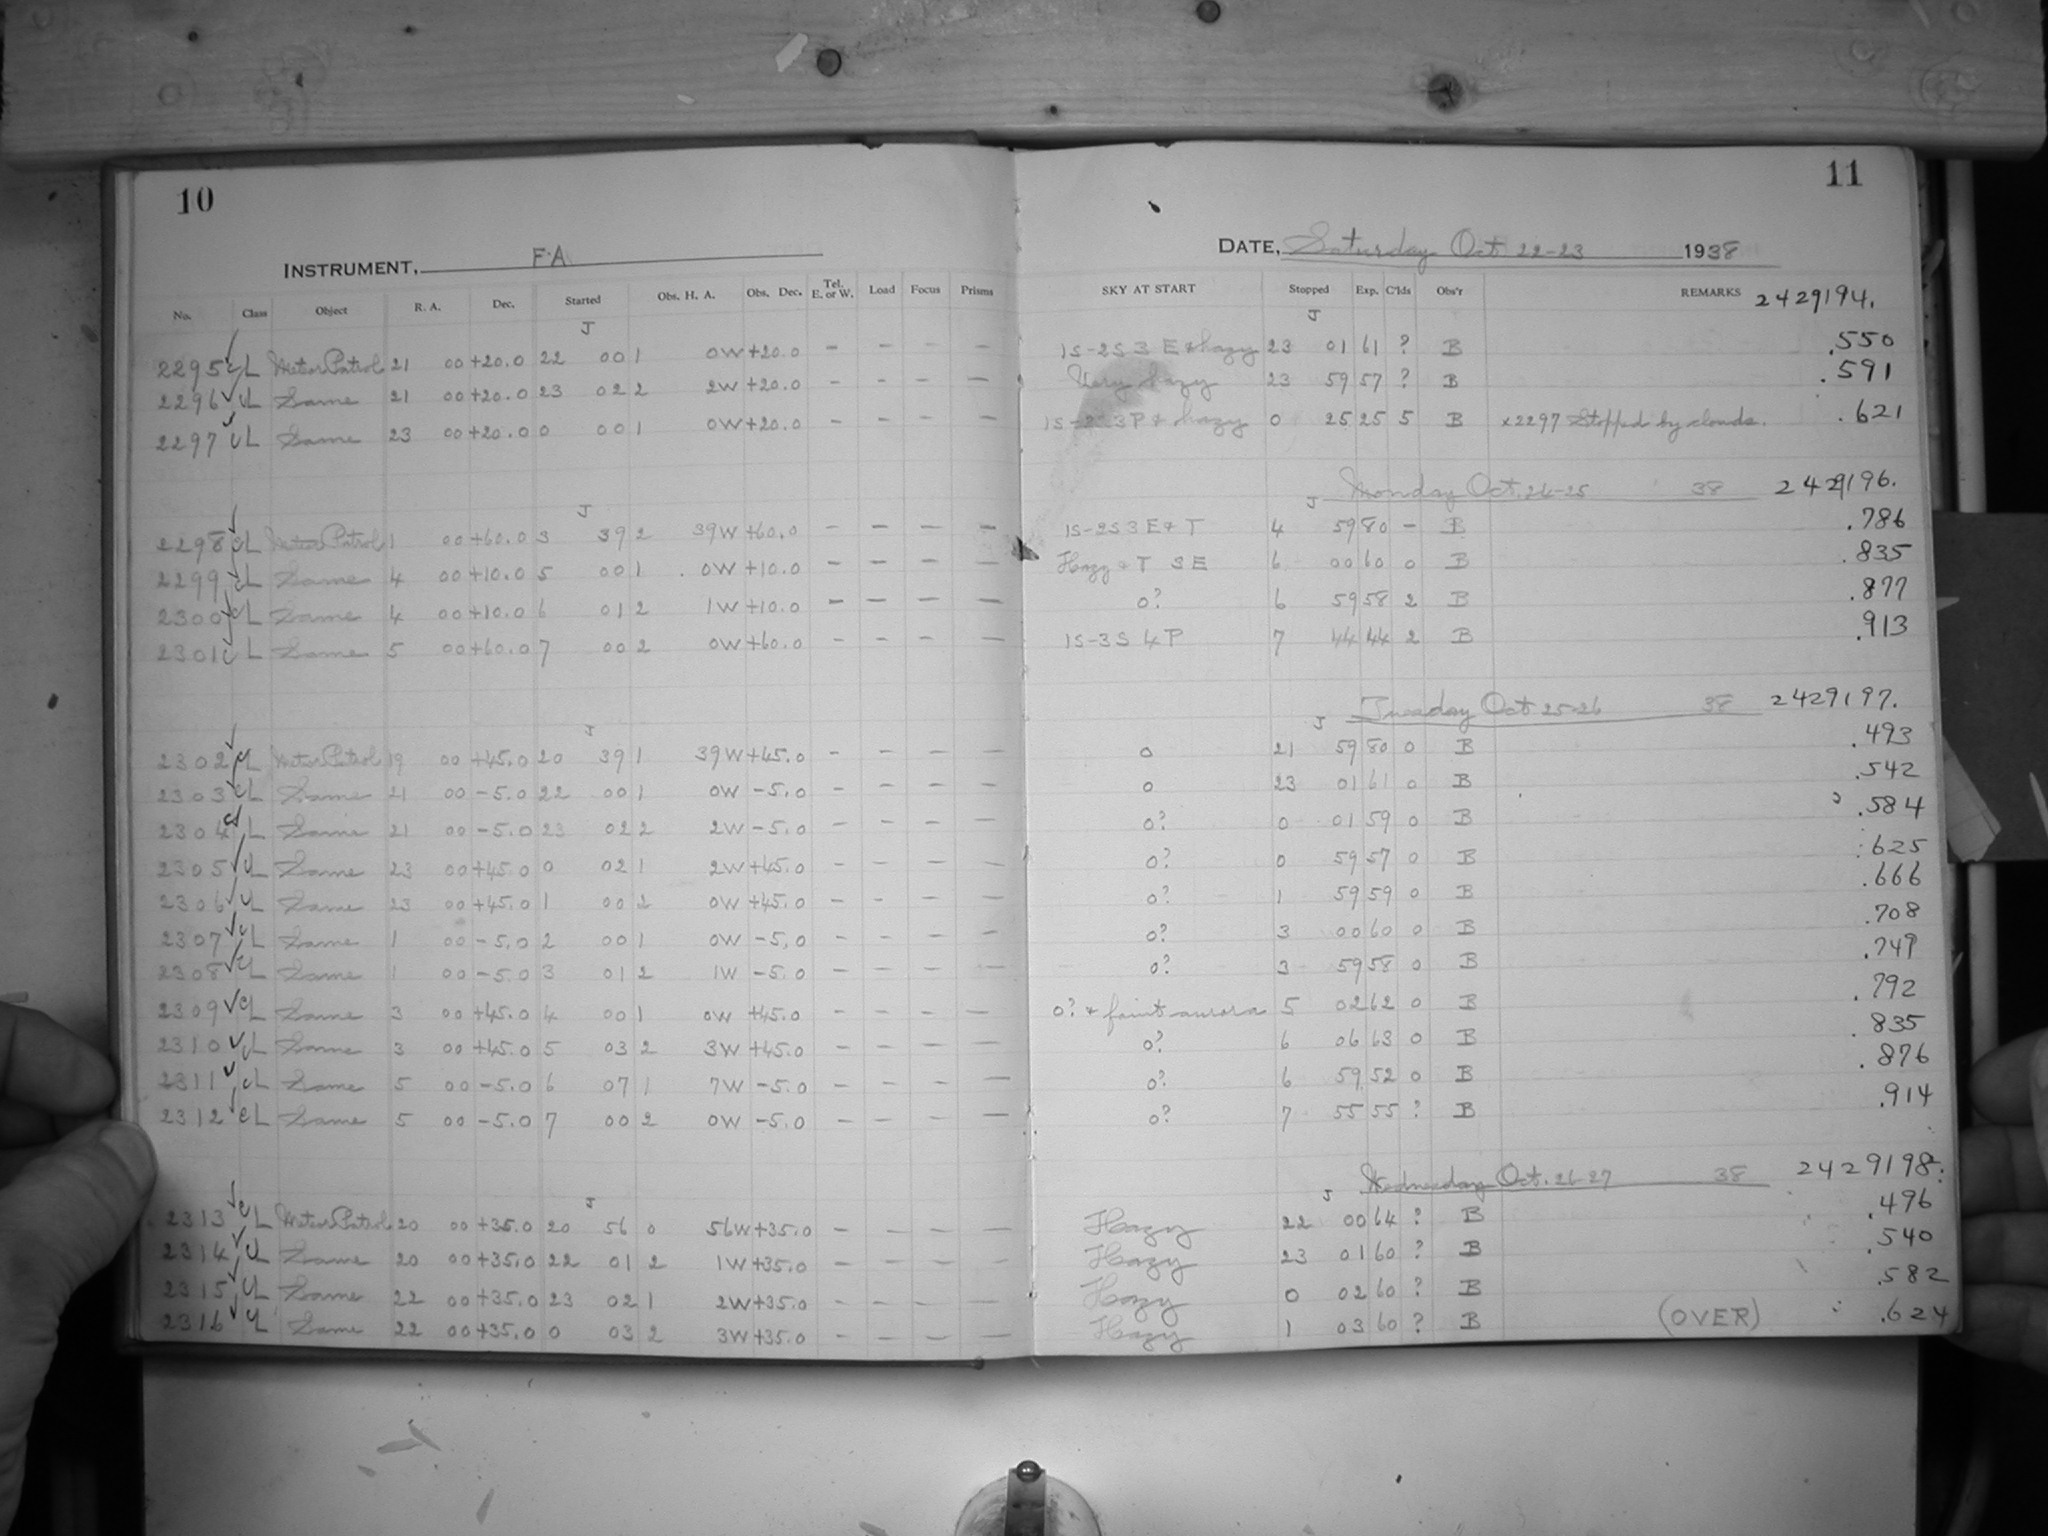 10
11
INSTRUMENT, FA
DATE, Saturday Oct 22-23 1938
No. Class Object R. A. Dec. Started Obs. H. A. Obs. Dec. Tel. E. or W. Load Focus Prisms SKY AT START Stopped Exp. C'lds Obs'r REMARKS 2429194.
J J
2295 L Meteor Patrol 21 00 +20.0 22 00 1 0W +20.0 - - - - 1S-2S 3 E & hazy 23 01 61 ? B .550
2296 L Same 21 00 +20.0 23 02 2 2W +20.0 - - - - Very hazy 23 59 57 ? B .591
2297 L Same 23 00 +20.0 0 00 1 0W +20.0 - - - - 1S-2S 3P & hazy 0 25 25 5 B x2297 Stopped by clouds. .621
Monday Oct. 24-25 38 2429196.
J J
2298 L Meteor Patrol 1 00 +60.0 3 39 2 39W +60.0 - - - - 1S-2S 3 E & T 4 59 80 - B .786
2299 L Same 4 00 +10.0 5 00 1 0W +10.0 - - - - Hazy & T 3 E 6 00 60 0 B .835
2300 L Same 4 00 +10.0 6 01 2 1W +10.0 - - - - 0? 6 59 58 2 B .877
2301 L Same 5 00 +60.0 7 00 2 0W +60.0 - - - - 1S-3S 4 P 7 44 44 2 B .913
Tuesday Oct 25-26 38 2429197.
J J
2302 L Meteor Patrol 19 00 +45.0 20 39 1 39W +45.0 - - - - 0 21 59 80 0 B .493
2303 L Same 21 00 -5.0 22 00 1 0W -5.0 - - - - 0 23 01 61 0 B .542
2304 L Same 21 00 -5.0 23 02 2 2W -5.0 - - - - 0? 0 01 59 0 B .584
2305 L Same 23 00 +45.0 0 02 1 2W +45.0 - - - - 0? 0 59 57 0 B .625
2306 L Same 23 00 +45.0 1 00 2 0W +45.0 - - - - 0? 1 59 59 0 B .666
2307 L Same 1 00 -5.0 2 00 1 0W -5.0 - - - - 0? 3 00 60 0 B .708
2308 L Same 1 00 -5.0 3 01 2 1W -5.0 - - - - 0? 3 59 58 0 B .749
2309 L Same 3 00 +45.0 4 00 1 0W +45.0 - - - - 0? & faint aurora 5 02 62 0 B .792
2310 L Same 3 00 +45.0 5 03 2 3W +45.0 - - - - 0? 6 06 63 0 B .835
2311 L Same 5 00 -5.0 6 07 1 7W -5.0 - - - - 0? 6 59 52 0 B .876
2312 L Same 5 00 -5.0 7 00 2 0W -5.0 - - - - 0? 7 55 55 ? B .914
Wednesday Oct. 26-27 38 2429198.
J J
2313 L Meteor Patrol 20 00 +35.0 20 56 0 56W +35.0 - - - - Hazy 22 00 64 ? B .496
2314 L Same 20 00 +35.0 22 01 2 1W +35.0 - - - - Hazy 23 01 60 ? B .540
2315 L Same 22 00 +35.0 23 02 1 2W +35.0 - - - - Hazy 0 02 60 ? B .582
2316 L Same 22 00 +35.0 0 03 2 3W +35.0 - - - - Hazy 1 03 60 ? B (OVER) .624